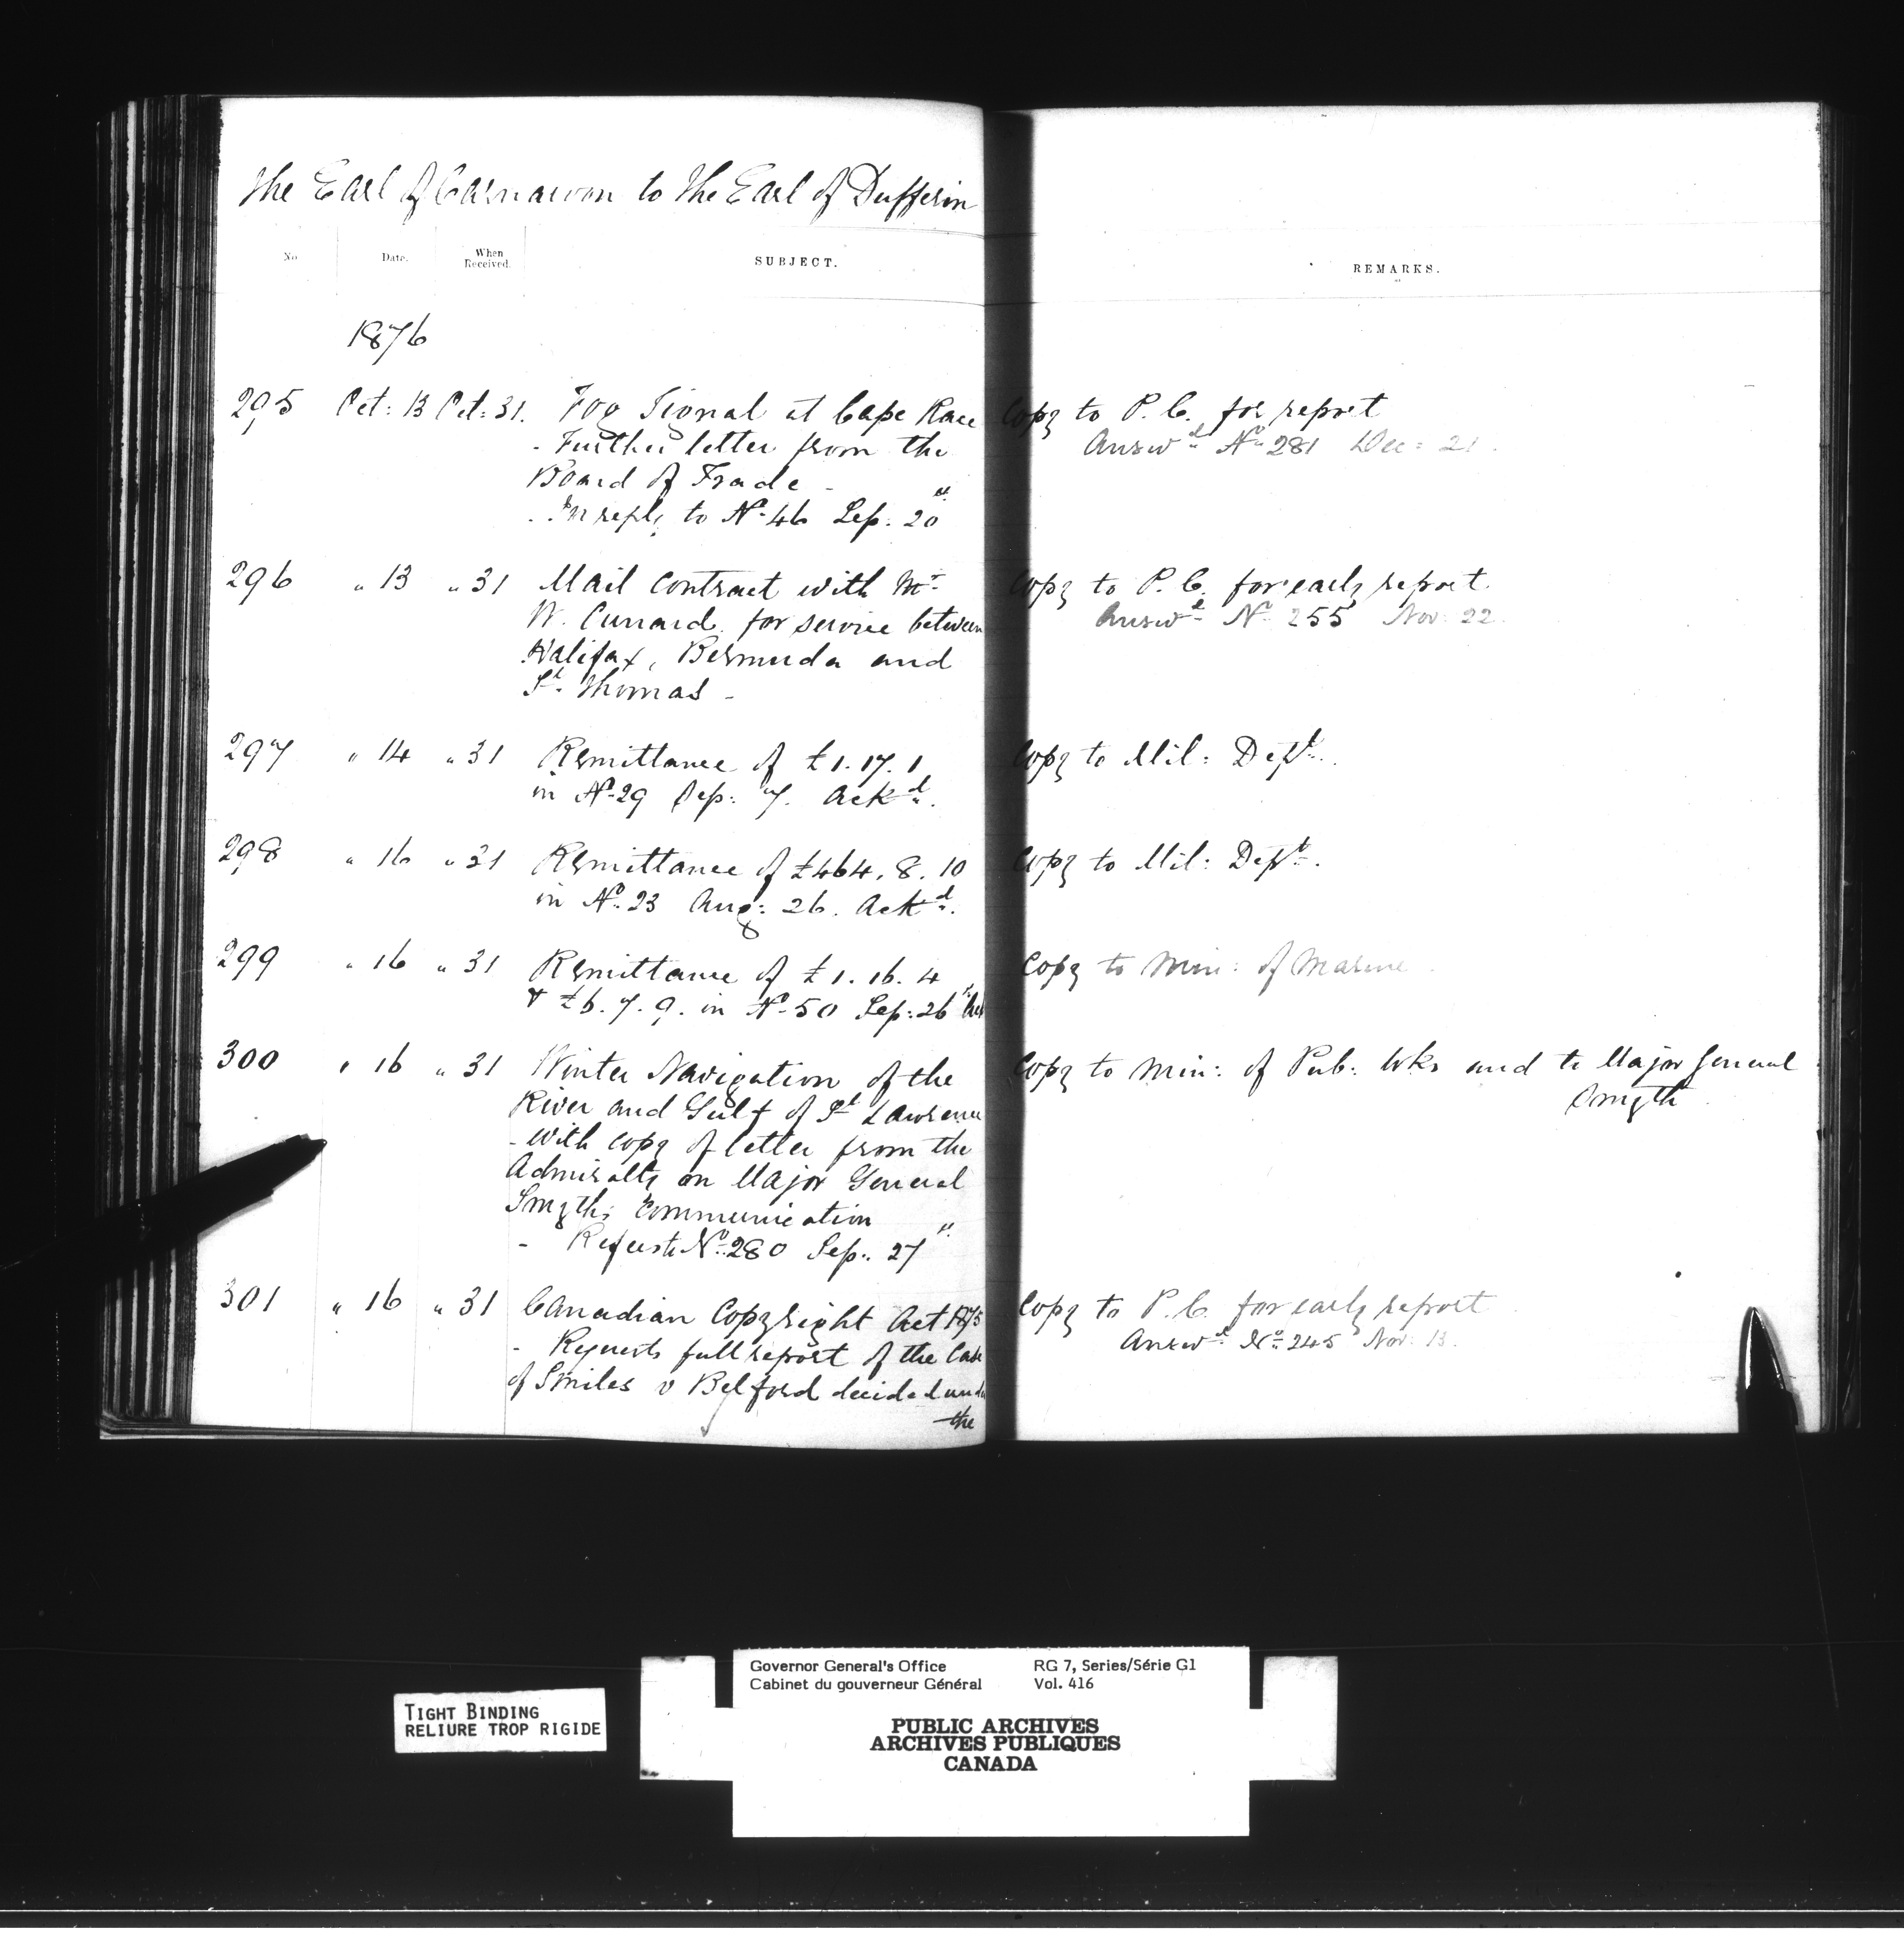 The Earl of Carnarvon to The Earl of Dufferin
No Date. When Received. SUBJECT. REMARKS.
1876
295 Oct: 13 Oct: 31. Fog Signal at Cape Race Copy to P.C. for report
- Further letter from the Answd No 281 Dec: 21.
Board of Trade -
- In reply to No 46 Sep: 20
296 " 13 " 31 Mail Contract with Mr Copy to P.C. for early report.
W. Cunard for service between Answd No 255 Nov: 22.
Halifax, Bermuda and
St. Thomas -
297 " 14 " 31 Remittance of £1.17.1 Copy to Mil: Dept.
in No 29 Sep: 7. Ackd.
298 " 16 " 31 Remittance of £464.8.10 Copy to Mil: Dept.
in No 23 Aug: 26. Ackd.
299 " 16 " 31 Remittance of £1.16.4 Copy to Min: of Marine.
& £6.7.9. in No 50 Sep: 26
300 " 16 " 31 Winter Navigation of the Copy to Min: of Pub: Wks and to Major General
River and Gulf of St Lawrence Smyth
- With copy of letter from the
Admiralty on Major General
Smyth's Communication
- Refers to No 280 Sep: 27
301 " 16 " 31 Canadian Copyright Act 1875 Copy to P.C. for early report
- Requests full report of the Case Answd No 245 Nov: 13.
of Smiles v Belford decided under
the
TIGHT BINDING
RELIURE TROP RIGIDE
Governor General's Office RG 7, Series/Série G1
Cabinet du gouverneur Général Vol. 416
PUBLIC ARCHIVES
ARCHIVES PUBLIQUES
CANADA